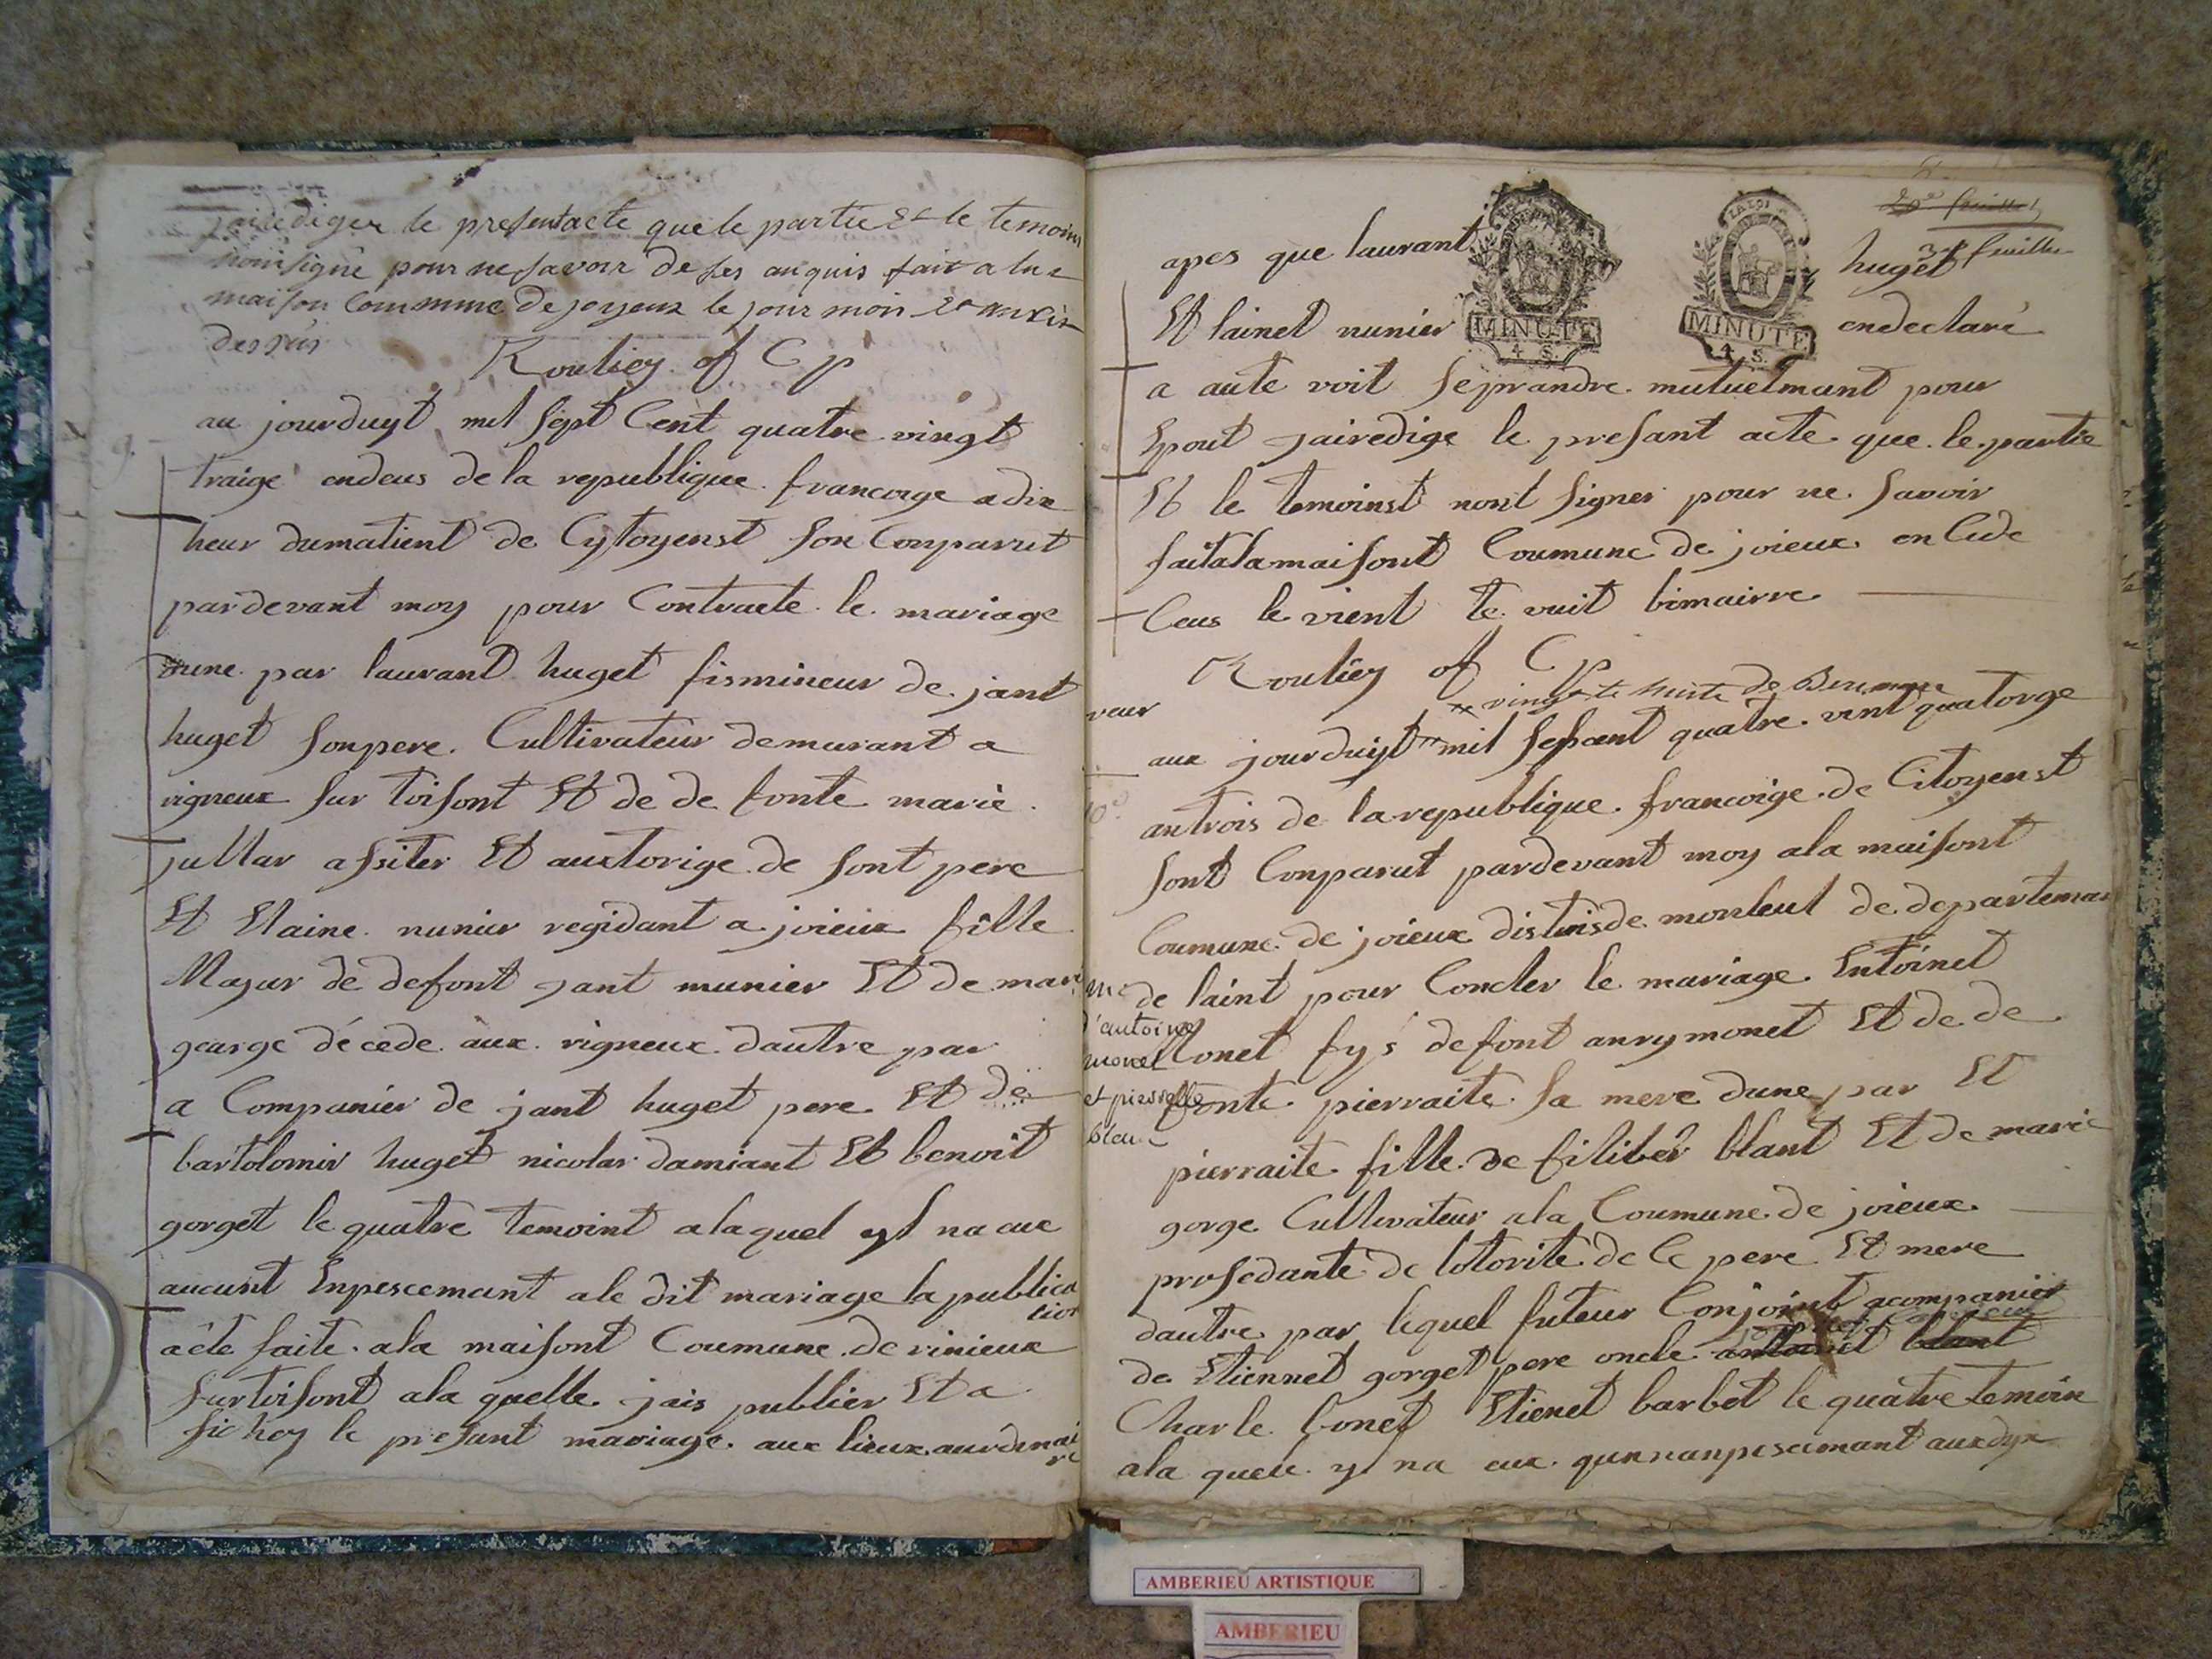 jairediger le presentacte que le partie et le temoins
nom signé pour ne savoir de ses anquis fait a la
maison Commune de joyeux le jour mois et an ci
dessus
Rouliey of C p
9.
au jourduyt mil sept Cent quatre vingt
traige endeus de la republique francoige a dix
heur dumatient de Cytoyenst son Conparut
pardevant moy pour Contracte le mariage
dune par laurant huget fismineur de jant
huget sonpere Cultivateur demurant a
vigneux sur toisont Et de de fonte marie
jullar assiter Et auxtorige de sont pere
Et Elaine nunier regidant a joieux fille
Majur de defont jant munier Et de mari
gearge décede aux vigneux dautre par
a Companier de jant huget pere Et de
bartolomir huget nicolar damiant Et benoit
gorget le quatre temoint alaquel yl na aux
aucunt Enpescemant a le dit mariage la publica
tion
acte faite ala maisont Coumune de vinieux
surtoisont ala quelle jais publier Et a
fichey le presant mariage aux lieux aurdinai
re
20e feuillet
3e feuillet
apes que laurant huget
Et lainet nunier endeclaré
LA LOI
MINUTE
4 S.
LA LOI
MINUTE
4. S.
a aute voit seprandre mutuelmant pour
Epout jairedige le presant acte que le partie
Et le temoinst nont signer pour ne savoir
faitalamaisont Coumune de joieux en Cede
Ceus le vient te vuit bimairre
Rouliey of C p
vingt te huite de Brumaire
aux jourduyt mil sepsent quatre vint quatorge
10e
antrois de la republique francoige de Citoyenst
sont Conparut pardevant moy ala maisont
Coumune de joieux distrisde monleul de departeman
de laint pour Concler le mariage Entoinet
me
d'antoine
monet
et pierrette
blanc
Monet fys defont anrymonet Et de de
fonte pierraite sa mere dune par Et
pierraite fille de filiber blant Et de marie
gorge Cultivateur ala Coumune de joieux
prosedante de lotorite de Ce pere Et mere
dautre par lequel futeur Conjoint acompanier
de Etiennet gorget pere oncle antoinet blant
Charle Conet Etienet barbet le quatre temoin
ala quele yl na aux qunnanpescemant auxdyx
AMBERIEU ARTISTIQUE
AMBERIEU